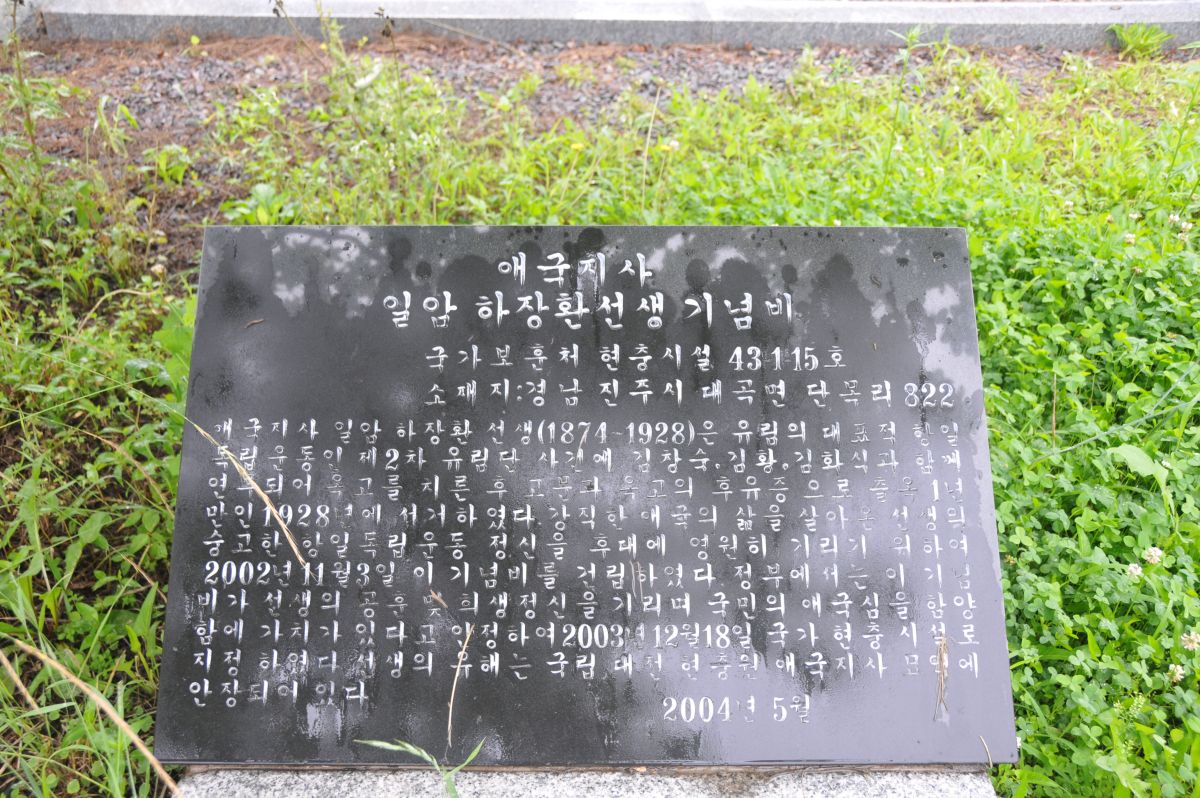 애국지사
일암 하장환선생 기념비
국가보훈처 현충시설 43-1-15호
소재지:경남 진주시 대곡면 단목리 822
애국지사 일암 하장환 선생(1874~1928)은 유림의 대표적 항일
독립운동인 제2차 유림단 사건에 김창숙,김황,김화식과 함께
연루되어 옥고를 치른 후 고문과 옥고의 후유증으로 출옥 1년
만인 1928년에 서거하였다.강직한 애국의 삶을 살아온 선생의
숭고한 항일독립운동 정신을 후대에 영원히 기리기 위하여
2002년 11월3일 이 기념비를 건립하였다.정부에서는 이 기념
비가 선생의 공훈과 희생정신을 기리며 국민의 애국심을 함양
함에 가치가 있다고 인정하여2003년 12월18일 국가현충시설로
지정 하였다.선생의 유해는 국립 대전 현충원 애국지사 묘역에
안장되어 있다
2004년 5월